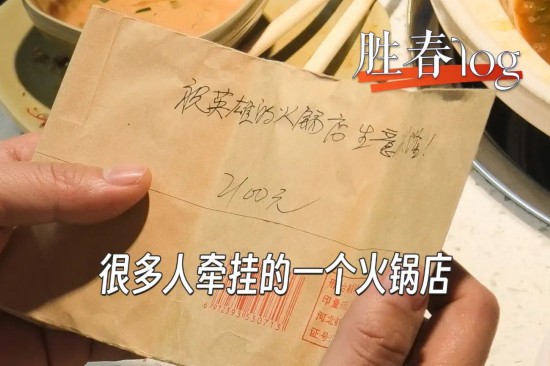 胜春log
祝英雄的火锅店生意隆!
2100元
很多人牵挂的一个火锅店
6912393530713